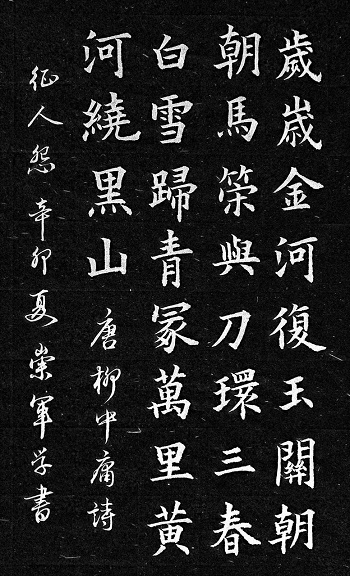 歲歲金河復玉關朝
朝馬策與刀環三春
白雪歸青冢萬里黃
河繞黑山 唐柳中庸詩
征人怨 辛卯夏崇軍学書